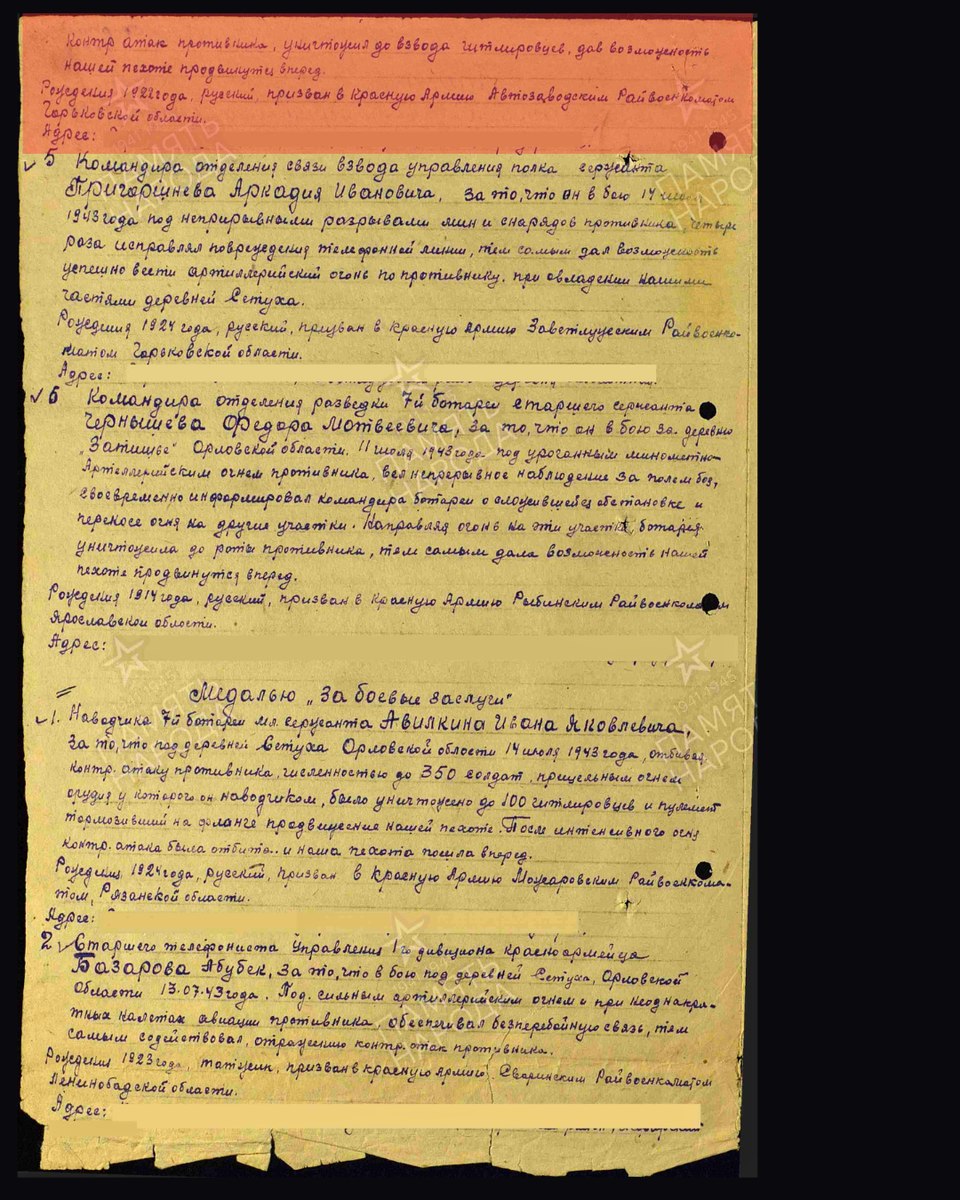 контр атак противника, уничтожил до взвода гитлировцев, дав возможность
нашей пехоте продвинутся вперед.
Рождения 1922 года, русский, призван в Красную Армию Автозаводским Райвоенкоматом
Горьковской области.
Адрес:
5 Командира отделения связи взвода управления полка сержанта
Пригоршнева Аркадия Ивановича, за то, что он в бою 14 июля
1943 года под неприрывными разрывами мин и снарядов противника, четыре
раза исправлял повреждения телефонной линии, тем самым дал возможность
успешно вести артиллерийский огонь по противнику, при овладении нашими
частями деревней Сетуха.
Рождения 1924 года, русский, призван в Красную Армию Заветлужским Райвоенко-
матом Горьковской области.
Адрес:
6 Командира отделения разведки 7й ботареи старшего сержанта
Чернышева Федора Мотвеевича, за то, что он в бою за деревню
„Затишье" Орловской области. 11 июля 1943 года под ураганным минометно-
Артеллерийским огнем противника, вел непрерывное наблюдение за полем боя,
своевременно информировал командира ботареи о сложившейся обстановке и
переносе огня на другие участки. Направляя огонь на эти участки, ботарея
уничтожила до роты противника, тем самым дала возможность нашей
пехоте продвинутся вперед.
Рождения 1914 года, русский, призван в Красную Армию Рыбинским Райвоенкоматом
Ярославской области.
Адрес:
Медалью „За боевые заслуги"
1. Наводчика 7й ботареи мл. сержанта Авилкина Ивана Яковлевича,
за то, что под деревней Сетуха Орловской области 14 июля 1943 года, отбивая
контр. атаку противника, численностью до 350 солдат, прицельным огнем
орудия у которого он наводчиком, было уничтожено до 100 гитлировцев и пулемет
тормозивший на фланге продвижение нашей пехоте. После интенсивного огня
контр. атака была отбита. и наша пехота пошла вперед.
Рождения 1924 года, русский, призван в Красную Армию Можаровским Райвоенкома-
том, Рязанской области.
Адрес:
2 Старшего телефониста Управления 1го дивизиона красноармейца
Базарова Абубек, за то, что в бою под деревней Сетуха, Орловской
области 13.07.43 года. Под сильным артиллерийским огнем и при неоднокра-
тных налетах авиации противника, обеспечивал безперебойную связь, тем
самым содействовал, отражению контр. атак противника.
Рождения 1923 года, татжик, призван в Красную Армию Сваринским Райвоенкоматом
Ленинобадской области.
Адрес: